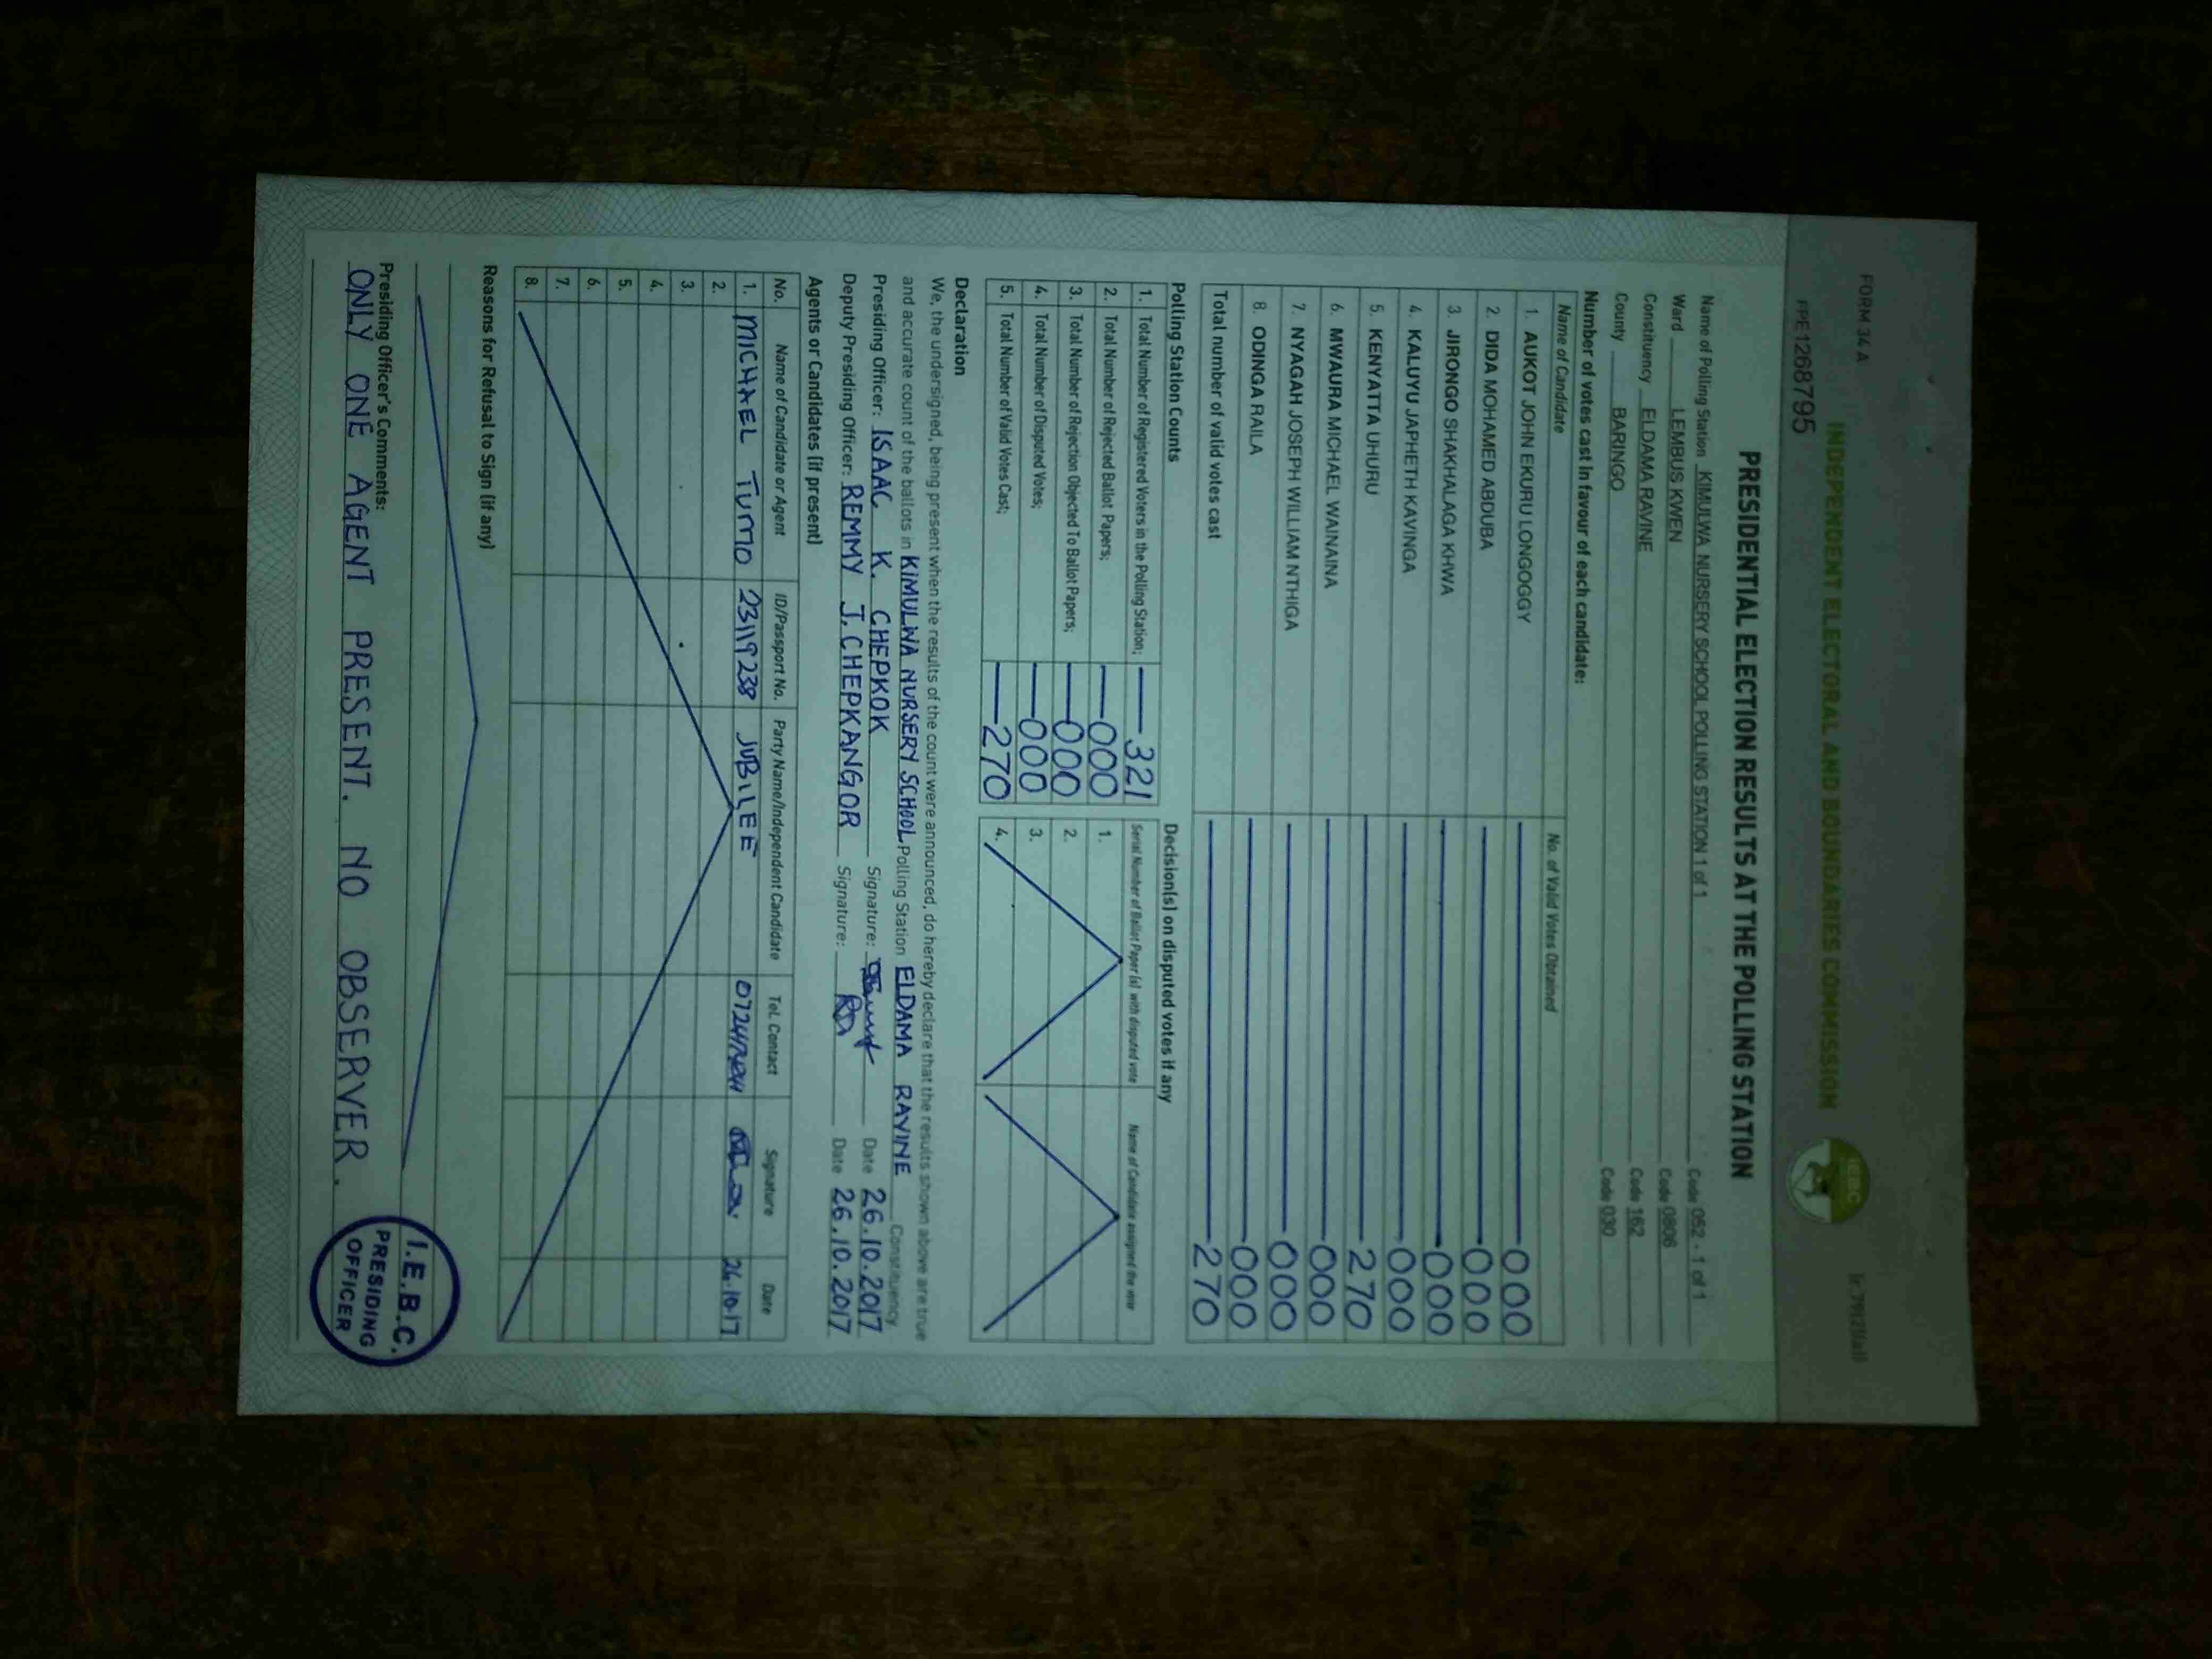 FORM 34 A
INDEPENDENT ELECTORAL AND BOUNDARIES COMMISSION
PPE1268795
iebc
PRESIDENTIAL ELECTION RESULTS AT THE POLLING STATION
Name of Polling Station KIMULWA NURSERY SCHOOL POLLING STATION 1 of 1 Code 052 - 1 of 1
Ward LEMBUS KWEN Code 0806
Constituency ELDAMA RAVINE Code 162
County BARINGO Code 030
Number of votes cast in favour of each candidate:
Name of Candidate No. of Valid Votes Obtained
1. AUKOT JOHN EKURU LONGOGGY 000
2. DIDA MOHAMED ABDUBA 000
3. JIRONGO SHAKHALAGA KHWA 000
4. KALUYU JAPHETH KAVINGA 000
5. KENYATTA UHURU 270
6. MWAURA MICHAEL WAINAINA 000
7. NYAGAH JOSEPH WILLIAM NTHIGA 000
8. ODINGA RAILA 000
Total number of valid votes cast 270
Polling Station Counts
1. Total Number of Registered Voters in the Polling Station; 321
2. Total Number of Rejected Ballot Papers; 000
3. Total Number of Rejection Objected To Ballot Papers; 000
4. Total Number of Disputed Votes; 000
5. Total Number of Valid Votes Cast; 270
Decision(s) on disputed votes if any
Serial Number of Ballot Paper(s) with disputed vote Name of Candidate assigned the vote
1.
2.
3.
4.
Declaration
We, the undersigned, being present when the results of the count were announced, do hereby declare that the results shown above are true
and accurate count of the ballots in KIMULWA NURSERY SCHOOL Polling Station ELDAMA RAVINE Constituency.
Presiding Officer: ISAAC K. CHEPKOK Signature: Date 26.10.2017
Deputy Presiding Officer: REMMY J. CHEPKANGOR Signature: Date 26.10.2017
Agents or Candidates (if present)
No. Name of Candidate or Agent ID/Passport No. Party Name/Independent Candidate Tel. Contact Signature Date
1. MICHAEL TUMO 23119238 JUBILEE 26.10.17
2.
3.
4.
5.
6.
7.
8.
Reasons for Refusal to Sign (if any)
Presiding Officer's Comments:
ONLY ONE AGENT PRESENT. NO OBSERVER.
I.E.B.C.
PRESIDING
OFFICER